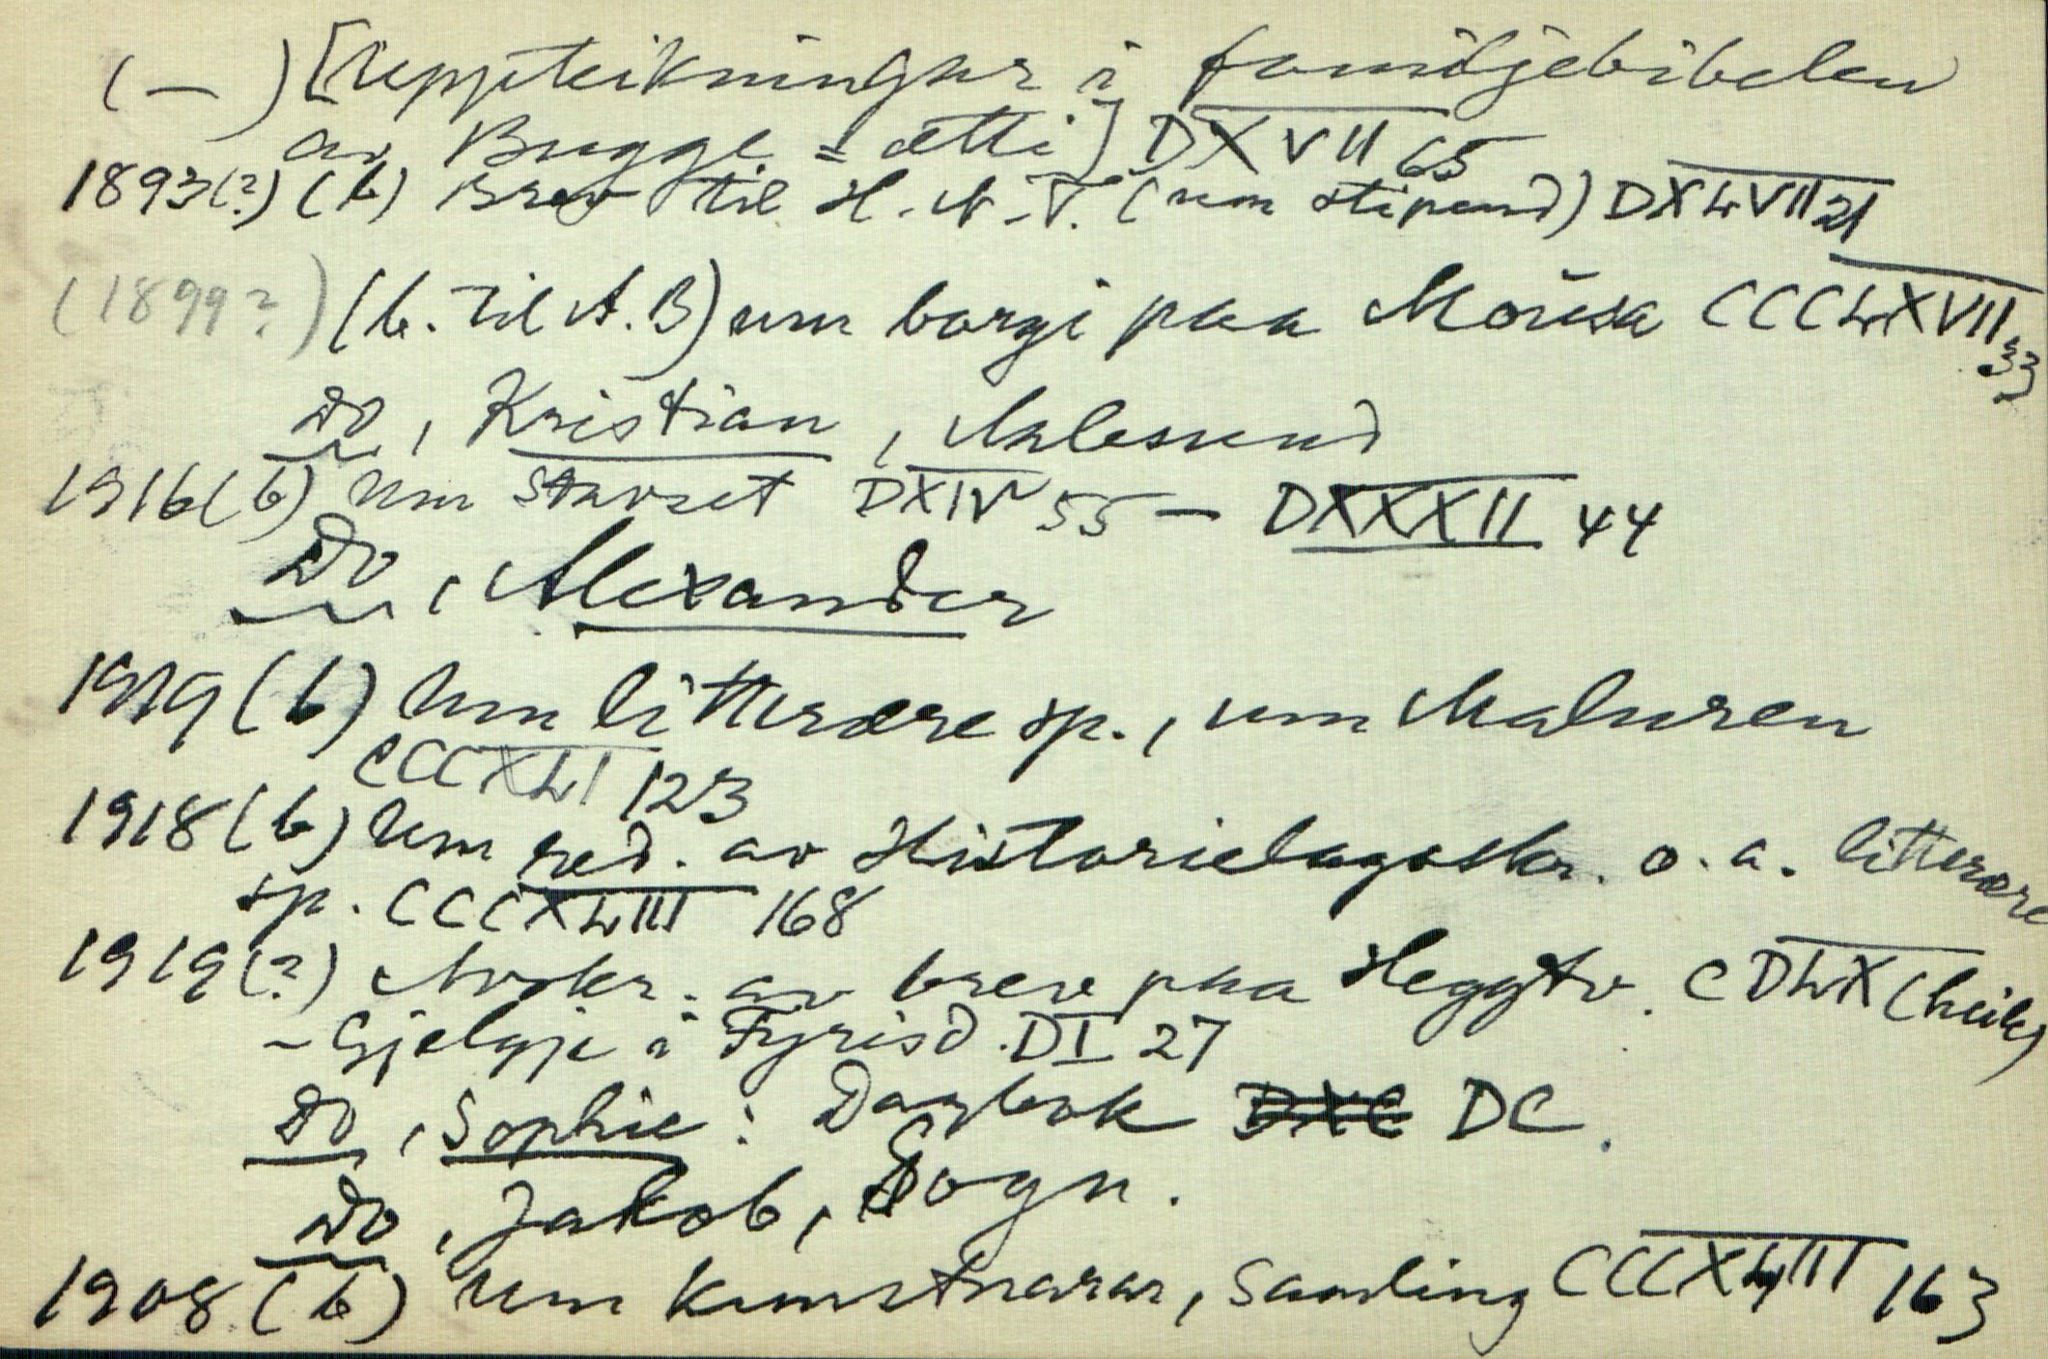 (—) [Uppteikningar i familjebibelen
av Bugge=ætti] DXVII 65
1893(?) (b) Brev til H. N. T. (um stipend) DXLVII 21
(1899?) (b. til A. B) um borgi paa Mousa CCCLXVII 33
Do, Kristian, Aalesund
1916 (b) Um Starset DXIV 55 – DXXXII 44
Do, Alexander
1919 (b) Um litterære sp., um Maluren
CCCXLI 123
1918 (b) Um red. av Historielagsskr. o. a. litterære
sp. CCCXLIII 168
1919 (?) Avskr. av brev paa Heggtv. CDLX (heile)
- Gjelgje i Fyrisd. DI 27
Do, Sophie: Dagbok DXC DC.
Do, Jakob, Sogn.
1908 (b) Um kunstnarar, samling CCCXLIII 163